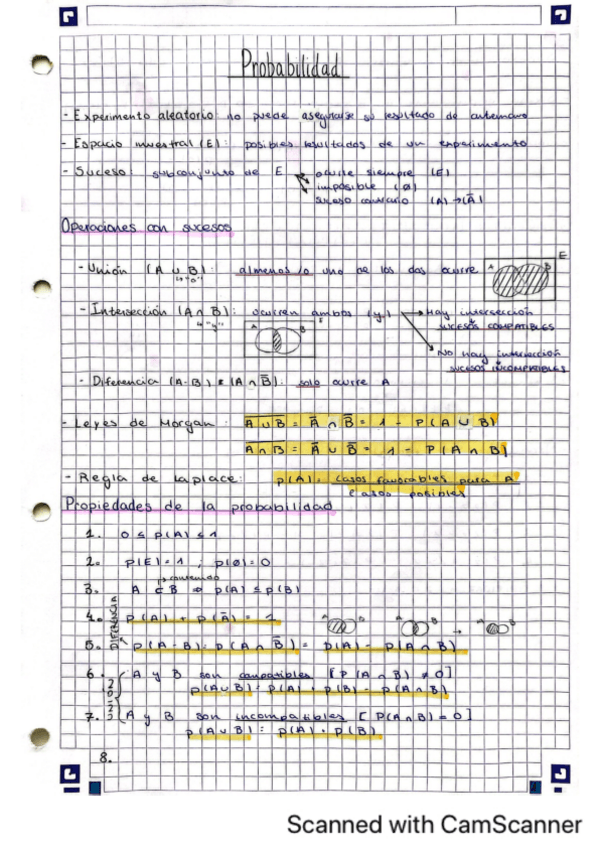 Probabilidad
- Experimento aleatorio: no puede asegurarse su resultado de antemano
- Espacio muestral (E): posibles resultados de un experimento
- Suceso: subconjunto de E → ocurre siempre (E)
imposible (Ø)
suceso contrario (A) → (Ā)
Operaciones con sucesos
- Unión (A ∪ B): almenos /o uno de los dos ocurre A B E
↳ "o"
- Intersección (A ∩ B): ocurren ambos (y) → Hay intersección
↳ "y" SUCESOS COMPATIBLES
A B E
No hay intersección
SUCESOS INCOMPATIBLES
- Diferencia (A-B) = (A ∩ B̅): solo ocurre A
- Leyes de Morgan: A̅ ∪̅ B̅ = A̅ ∩ B̅ = 1 - P(A ∪ B)
A̅ ∩̅ B̅ = A̅ ∪ B̅ = 1 - P(A ∩ B)
- Regla de Laplace: p(A) = casos favorables para A
casos posibles
Propiedades de la probabilidad
1. 0 ≤ p(A) ≤ 1
2. p(E) = 1 ; p(Ø) = 0
↳ contenido
3. A ⊂ B ⇒ p(A) ≤ p(B)
4. p(A) + p(A̅) = 1
DIFERENCIA
5. p(A - B) = p(A ∩ B̅) = p(A) - p(A ∩ B)
6. A y B son compatibles [P(A ∩ B) ≠ 0]
p(A ∪ B) = p(A) + p(B) - p(A ∩ B)
7. A y B son incompatibles [P(A ∩ B) = 0]
p(A ∪ B) = p(A) + p(B)
8.
Scanned with CamScanner